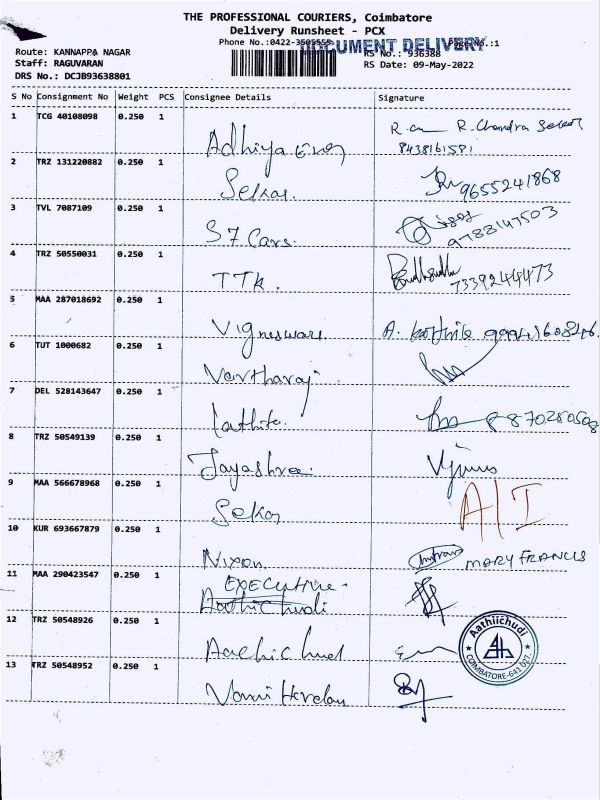 THE PROFESSIONAL COURIERS, Coimbatore
Delivery Runsheet - PCX
Phone No.:0422-3505555
DOCUMENT DELIVERY
Page No.:1
Route: KANNAPPA NAGAR
RS No.: 936388
Staff: RAGUVARAN
RS Date: 09-May-2022
DRS No.: DCJB93638801
S No Consignment No Weight PCS Consignee Details Signature
1 TCG 40108098 0.250 1
Adhiya R. Chandra Sekar
8438161591
2 TRZ 131220882 0.250 1
Sekar. 9655241868
3 TVL 7087109 0.250 1
S7 Cars. 9788147503
4 TRZ 50550031 0.250 1
TTK. 7339244473
5 MAA 287018692 0.250 1
Vigneswara A.
6 TUT 1000682 0.250 1
Vartharaj
7 DEL 528143647 0.250 1
8870280508
8 TRZ 50549139 0.250 1
Jayashree
9 MAA 566678968 0.250 1
Sekar A/I
10 KUR 693667879 0.250 1
Nixon. MARY FRANCIS
11 MAA 290423547 0.250 1
EXECUTIVE.
Aathichudi
12 TRZ 50548926 0.250 1
Aathichudi
Aathiichudi
COIMBATORE-641 027.
13 TRZ 50548952 0.250 1